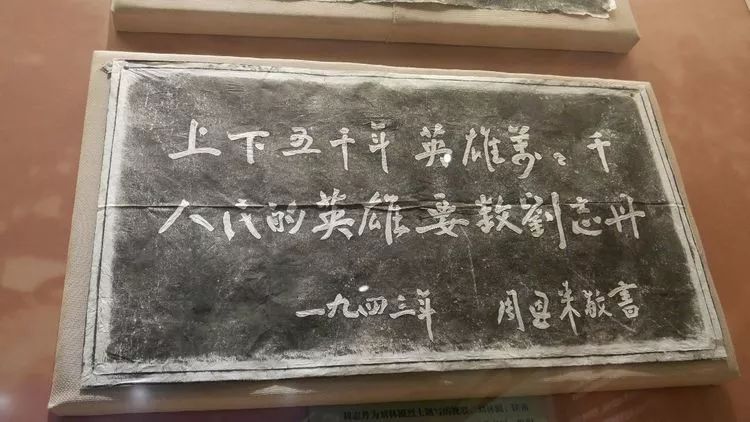 上下五千年 英雄萬々千
人民的英雄 要数劉志丹
一九四三年 周恩来敬書